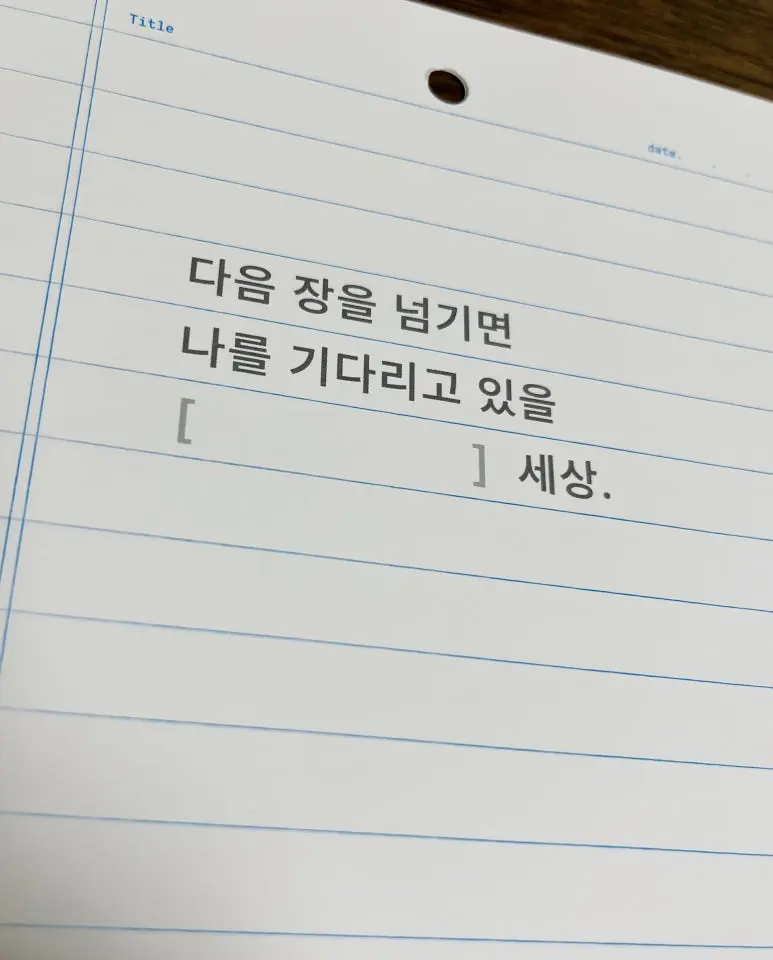 Title
date. . .
다음 장을 넘기면
나를 기다리고 있을
[ ] 세상.